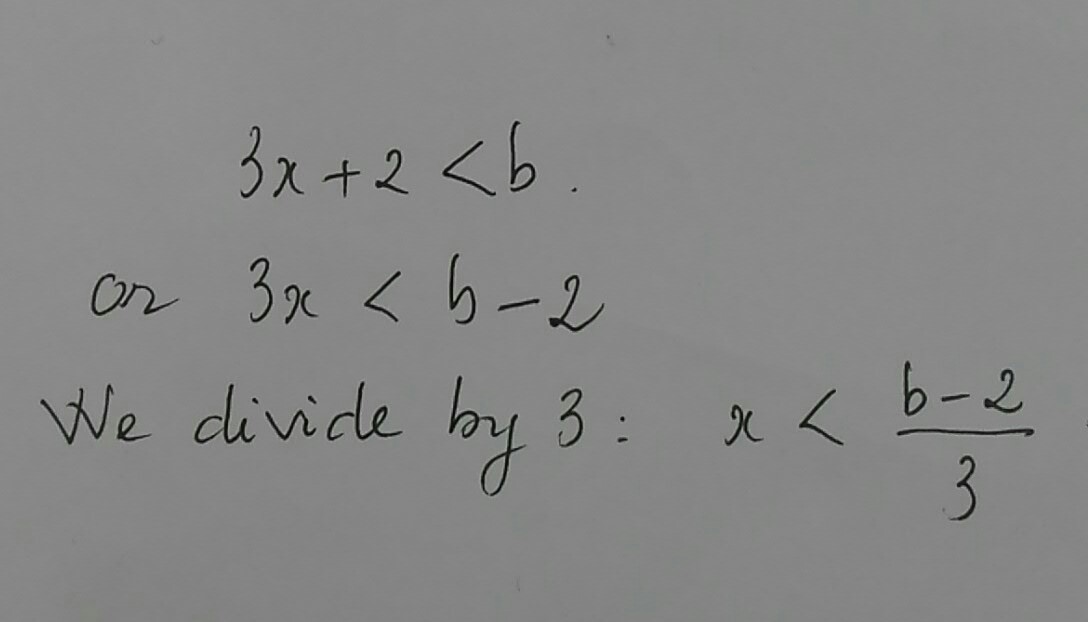 3x + 2 < b.
or 3x < b - 2
We divide by 3 : x < \frac{b-2}{3}